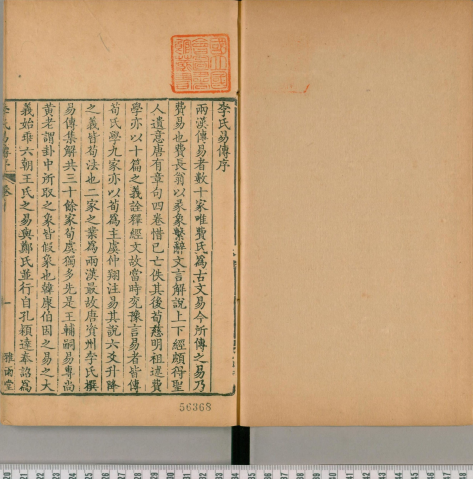 李氏易傳序
兩漢傳易者數十家唯費氏爲古文易今所傳之易乃
費易也費長翁以彖象繫辭文言解說上下經頗得聖
人遺意唐有章句四卷惜已亡佚其後荀慈明祖述費
學亦以十篇之義詮釋經文故當時兖豫言易者皆傳
荀氏學九家亦以荀爲主虞仲翔注易其說六爻升降
之義皆荀法也二家之業爲兩漢最故唐資州李氏撰
易傳集解共三十餘家荀虞獨多先是王輔嗣易專尚
黃老謂卦中所取之象皆假象也韓康伯因之易之大
義始乖六朝王氏之易與鄭氏並行自孔穎達奉詔爲
李氏易傳序
一
雅雨堂
56368